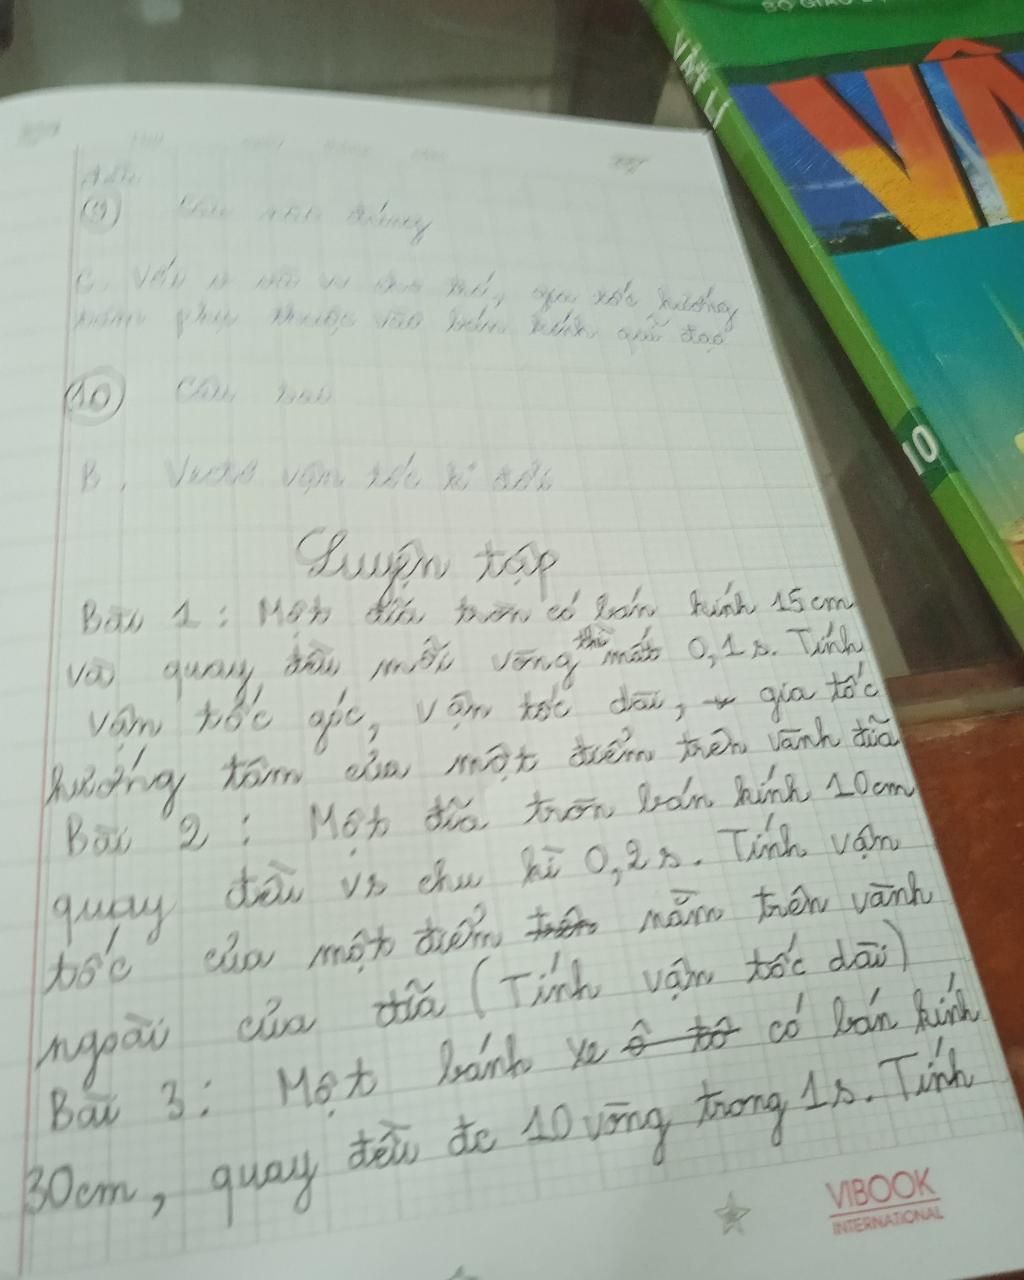 BỘ GIÁO
VẬT LÍ
VẬ
10
⑨ Câu nào đúng
C. Với v và ω cho
phụ thuộc vào bán kính quỹ đạo
⑩ Câu nào
B. Vectơ vận tốc
Luyện tập
Bài 1: Một đĩa tròn có bán kính 15cm
và quay đều mỗi vòng thì mất 0,1s. Tính
vận tốc góc, vận tốc dài, gia tốc
hướng tâm của một điểm trên vành đĩa
Bài 2: Một đĩa tròn bán kính 10cm
quay đều vs chu kì 0,2s. Tính vận
tốc của một điểm trên nằm trên vành
ngoài của đĩa (Tính vận tốc dài)
Bài 3: Một bánh xe ô tô có bán kính
30cm, quay đều đc 10 vòng trong 1s. Tính
VIBOOK
INTERNATIONAL